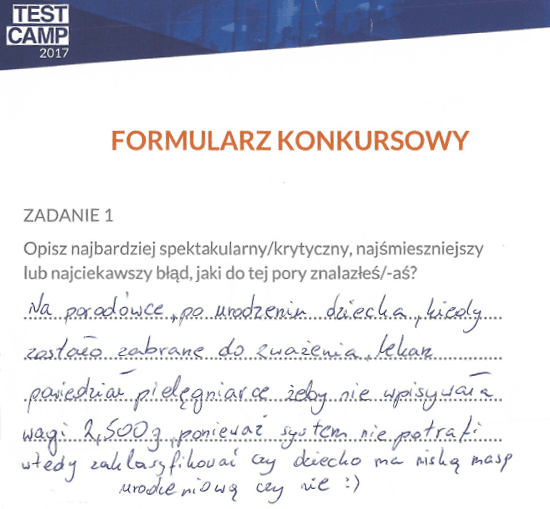 TEST
CAMP
2017
FORMULARZ KONKURSOWY
ZADANIE 1
Opisz najbardziej spektakularny/krytyczny, najśmieszniejszy
lub najciekawszy błąd, jaki do tej pory znalazłeś/-aś?
Na porodówce, po urodzeniu dziecka, kiedy
zostało zabrane do zważenia, lekarz
powiedział pielęgniarce żeby nie wpisywała
wagi 2,500g, ponieważ system nie potrafi
wtedy zaklasyfikować czy dziecko ma niską masę
urodzeniową czy nie :)